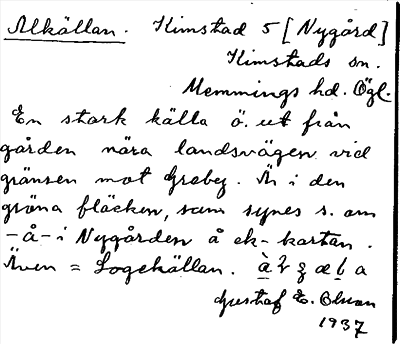 Alkällan. Kimstad 5 [Nygård]
Kimstads sn.
Memmings hd. Ögl.
En stark källa ö. ut från
gården nära landsvägen vid
gränsen mot Greby. Är i den
gröna fläcken, som synes s. om
-å- i Nygården å ek-kartan.
Även = Logekällan.
Gustaf E. Olsson
1937